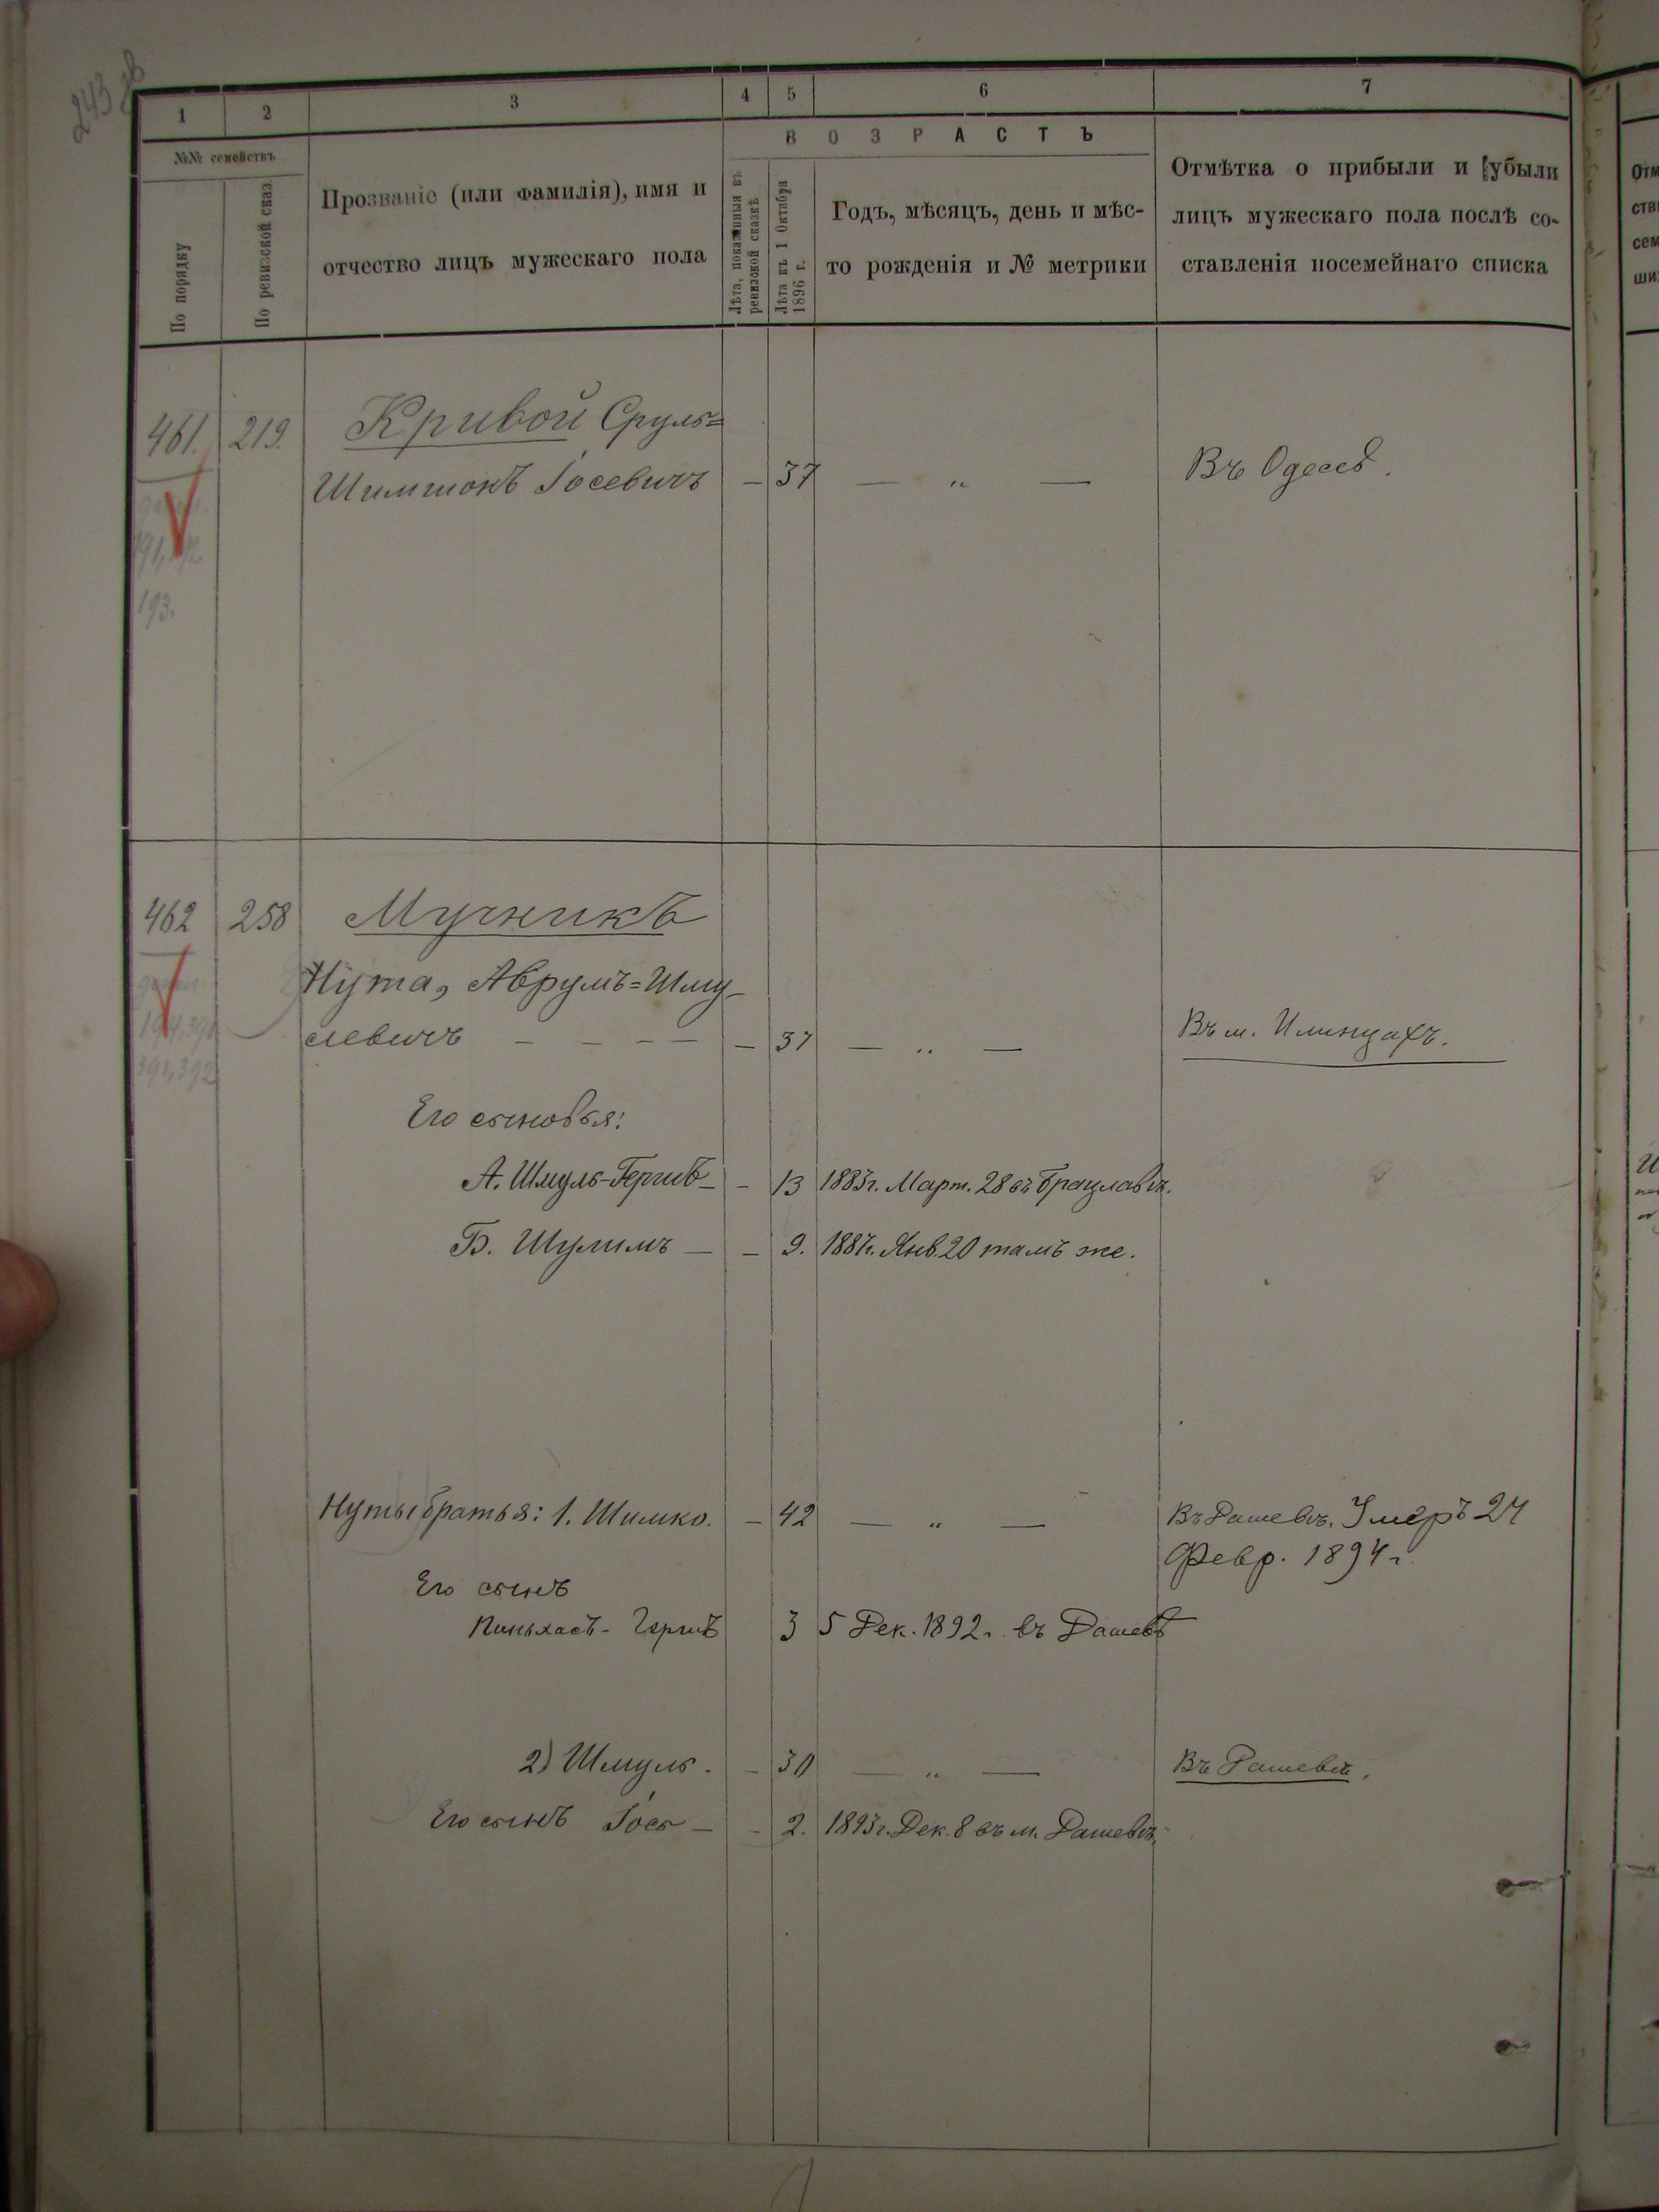 243 об
1 2 3 4 5 6 7
№№ семействъ
По порядку
По ревизской сказ.
Прозваніе (или фамилія), имя и
отчество лицъ мужескаго пола
ВОЗРАСТЪ
Лѣта, показанныя въ
ревизской сказкѣ
Лѣта къ 1 Октября
1896 г.
Годъ, мѣсяцъ, день и мѣс-
то рожденія и № метрики
Отмѣтка о прибыли и убыли
лицъ мужескаго пола послѣ со-
ставленія посемейнаго списка
461. 219. Кривой Сруль=
Шимшонъ Іосевичъ — 37 — „ — Въ Одессѣ.
193.
462 258 Мучникъ
Нута, Аврумъ=Шму-
левичъ — — — — — 37 — „ — Въ м. Илинцахъ.
391,392
Его сыновья:
А. Шмуль-Гершъ — — 13 1883г. Март. 28 въ Брацлавѣ.
Б. Шулимъ — — 9. 1887г. Янв. 20 тамъ же.
Нуты братья: 1. Шимко. — 42 — „ — Въ Дашевѣ. Умеръ 24
Февр. 1894 г.
Его сынъ
Пиньхасъ-Гершъ 3 5 Дек. 1892 г. въ Дашевѣ
2) Шмуль. — 30 — „ — Въ Дашевѣ.
Его сынъ Іось — — 2. 1893г. Дек. 8 въ м. Дашевѣ.